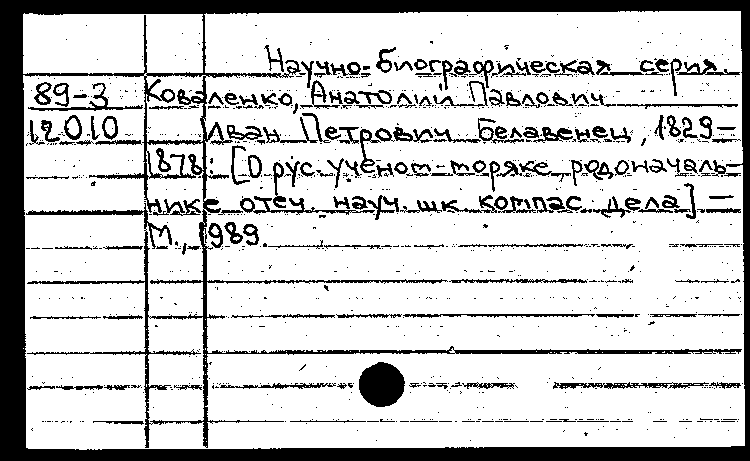 Научно-биографическая серия.
89-3 Коваленко, Анатолий Павлович
12010 Иван Петрович Белавенец, 1829-
1878: [О рус. ученом-моряке, родоначаль-
нике отеч. науч. шк компас. дела] —
М., 1989.